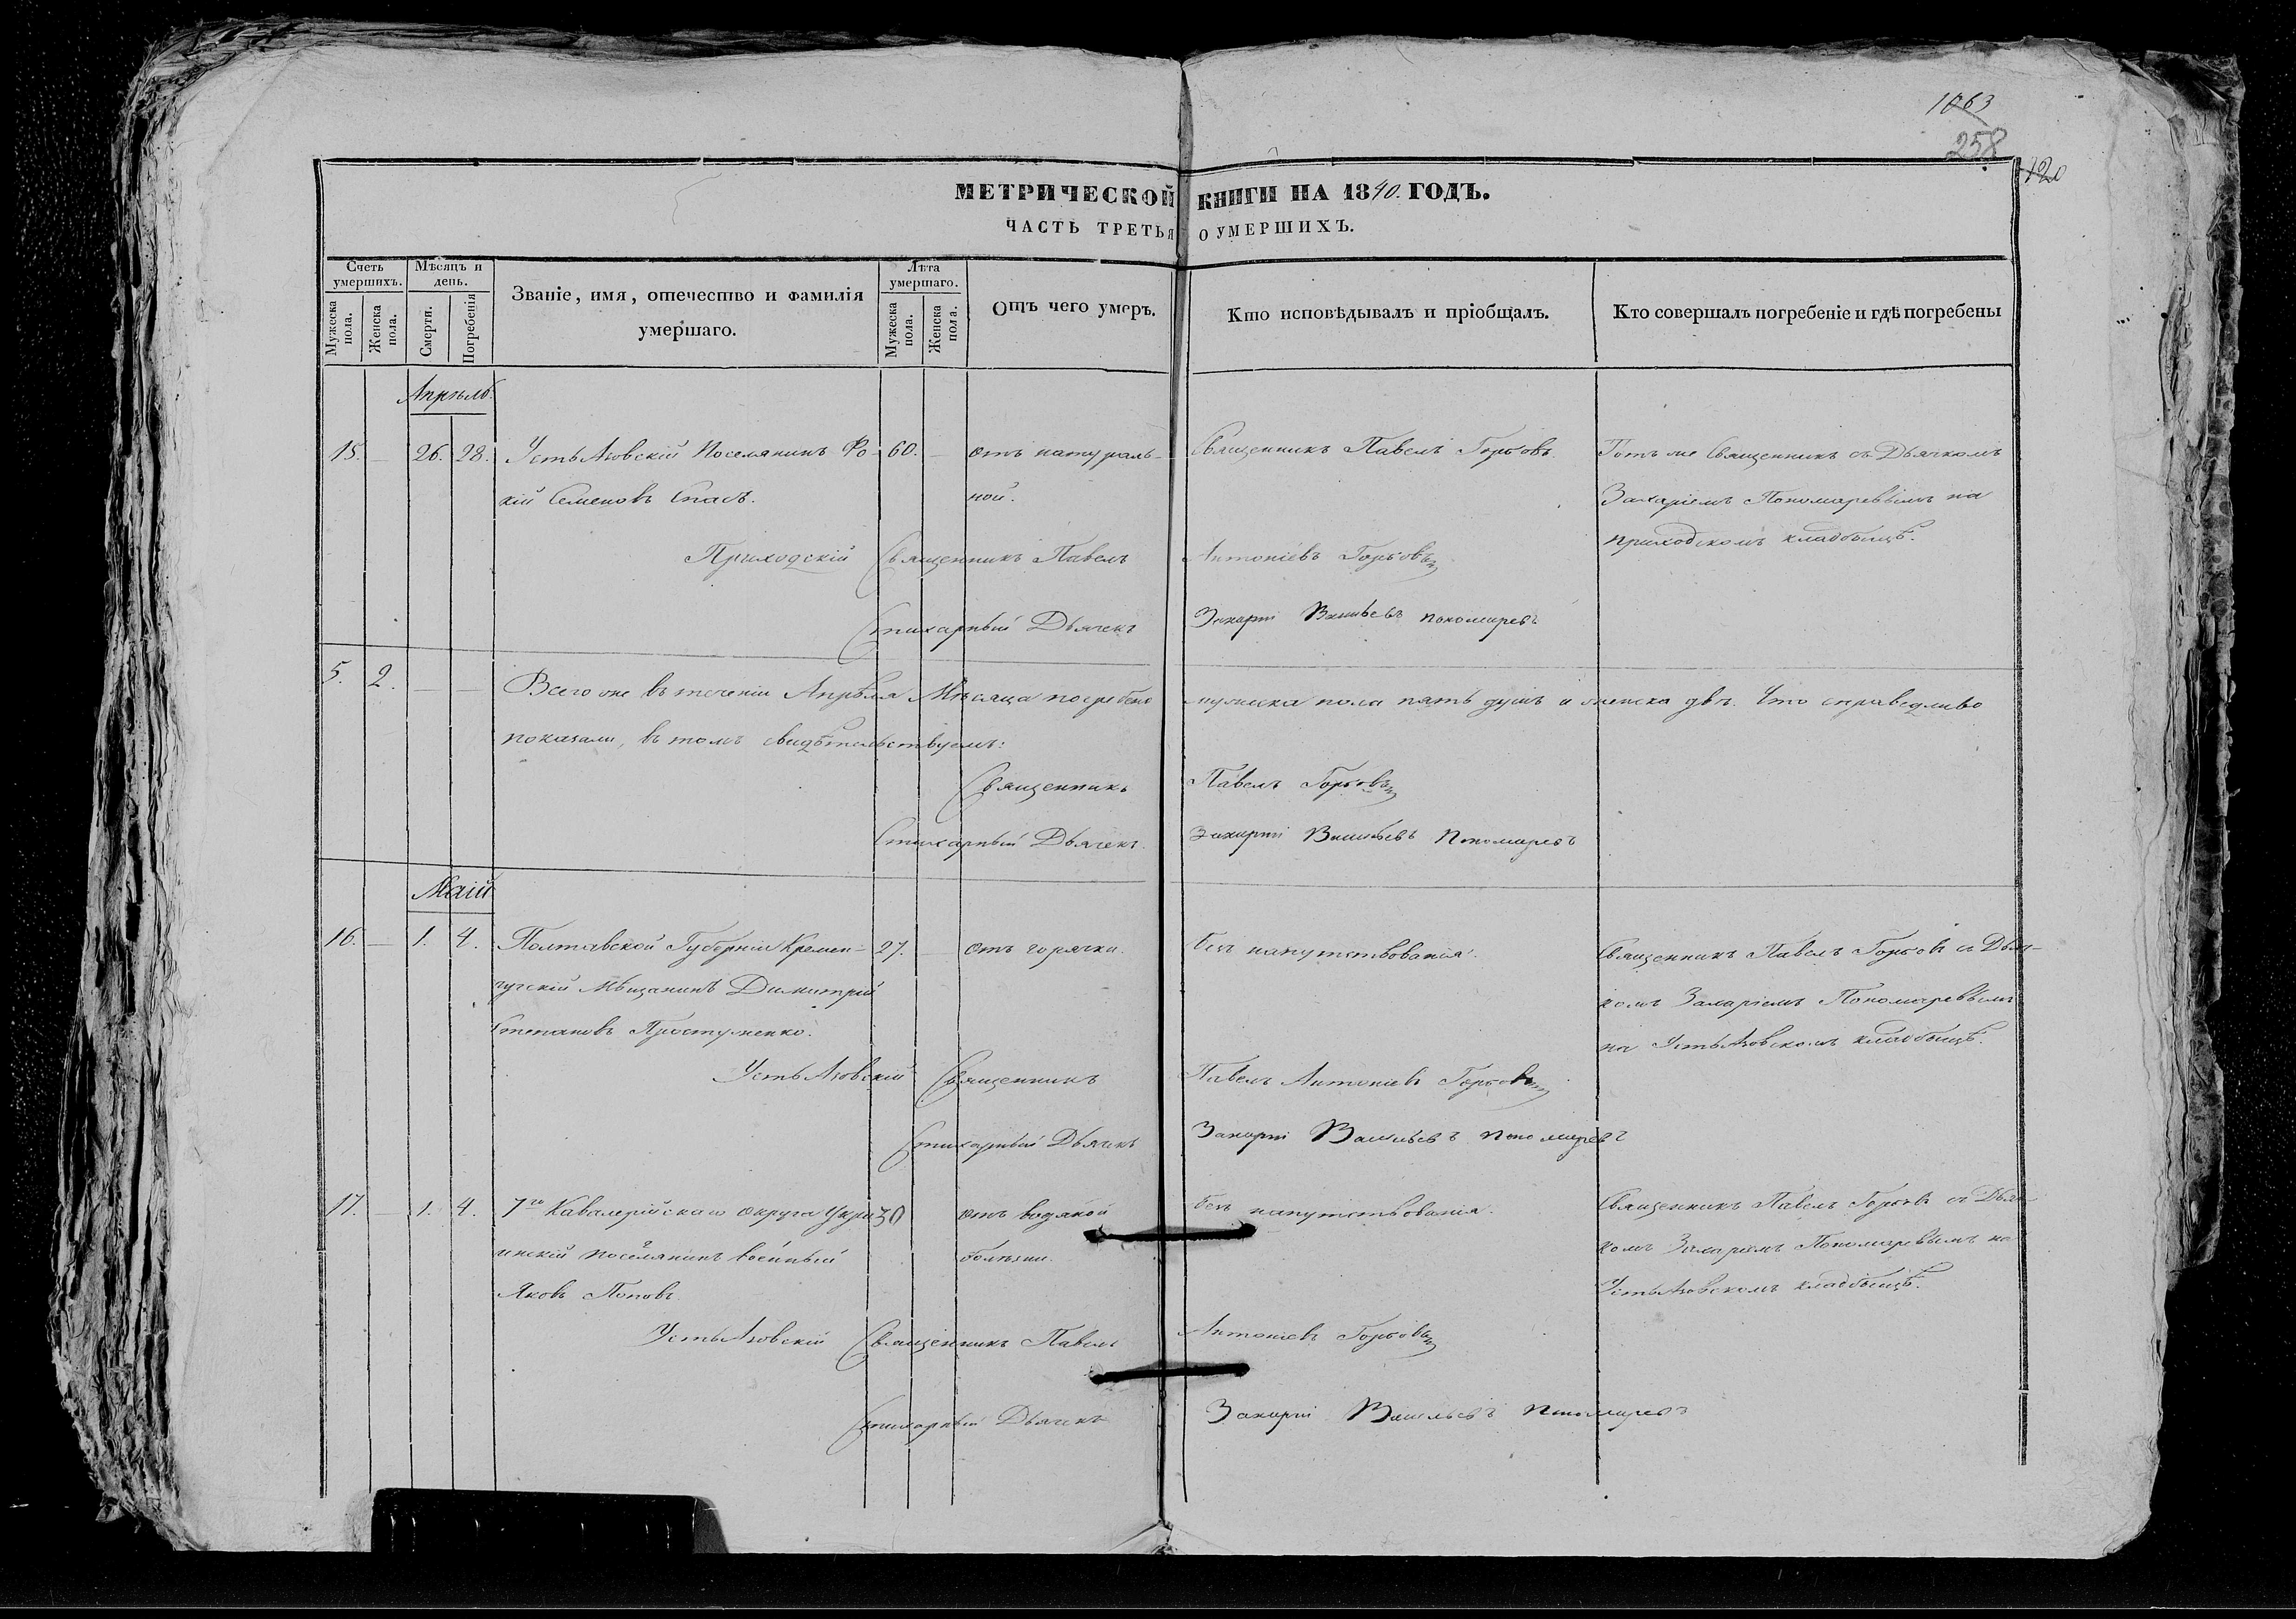 1063
258
120
МЕТРИЧЕСКОЙ КНИГИ НА 1840. ГОДЪ.
ЧАСТЬ ТРЕТЬЯ О УМЕРШИХЪ.
Счетъ умершихъ.
Мужеска пола.
Женска пола.
Мѣсяцъ и день.
Смерти.
Погребенія
Званіе, имя, отечество и фамилія умершаго.
Лѣта умершаго.
Мужеска пола.
Женска пола.
Отъ чего умеръ.
Кто исповѣдывалъ и пріобщалъ.
Кто совершалъ погребеніе и гдѣ погребены
Апрѣль.
15. — 26. 28. Поселянинъ Фо- 60. — отъ натураль- Священникъ Павелъ Тотъ же Священникъ съ Дьячкомъ
кій Семеновъ ной. Захаріемъ Пономаревымъ на
приходскомъ кладбищѣ.
Приходскій Священникъ Павелъ Антоніевъ
Стихарный Дьячекъ Захарій Васильевъ Пономаревъ
5. 2. — — Всего же въ теченіи Апрѣля Мѣсяца погребено мужеска пола пять душъ и женска двѣ. Что справедливо
показали, въ томъ свидѣтельствуемъ:
Священникъ Павелъ
Стихарный Дьячекъ Захарій Васильевъ Пономаревъ
Маій
16. — 1. 4. Полтавской Губерніи Кремен- 27. — отъ горячки. безъ напутствованія. Священникъ Павелъ съ Дьяч-
чугскій Мѣщанинъ Димитрій комъ Захаріемъ Пономаревымъ
Степановъ на кладбищѣ.
Священникъ Павелъ Антоніевъ
Стихарный Дьячекъ Захарій Васильевъ Пономаревъ
17. — 1. 4. 7го Кавалерійскаго округа 30 отъ водяной безъ напутствованія. Священникъ Павелъ съ Дьяч-
поселянинъ военный болѣзни. комъ Захаріемъ Пономаревымъ на
Яковъ Поповъ кладбищѣ.
Священникъ Павелъ Антоніевъ
Стихарный Дьячекъ Захарій Васильевъ Пономаревъ